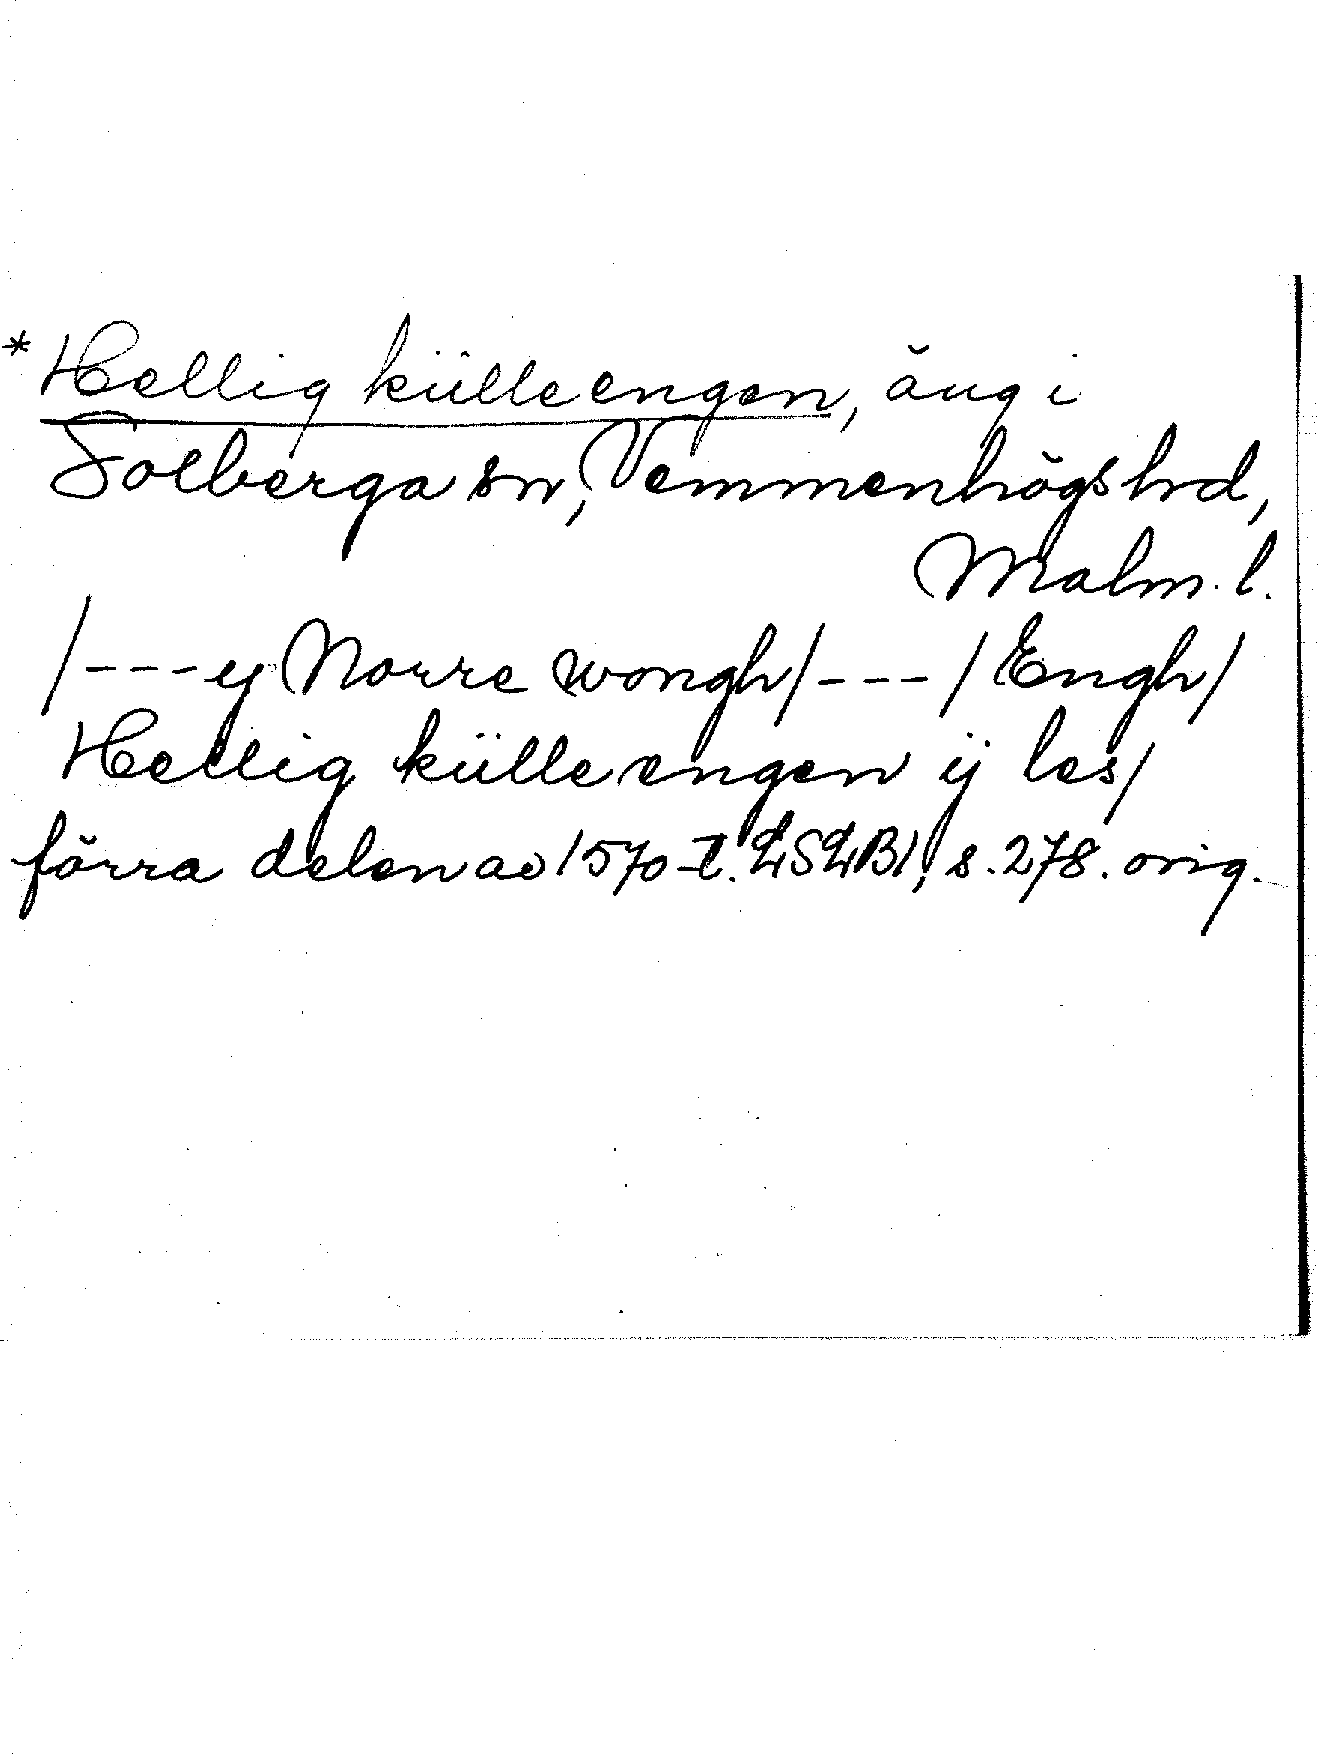 * Hellig külleengen, äng i
Solberga sn, Vemmenhögs hrd,
Malm. l.
/---ey Norre wongh/---/Engh/
Hellig külle engen ij les/
förra delen av 1570-t. LSLB1, s. 278. orig.